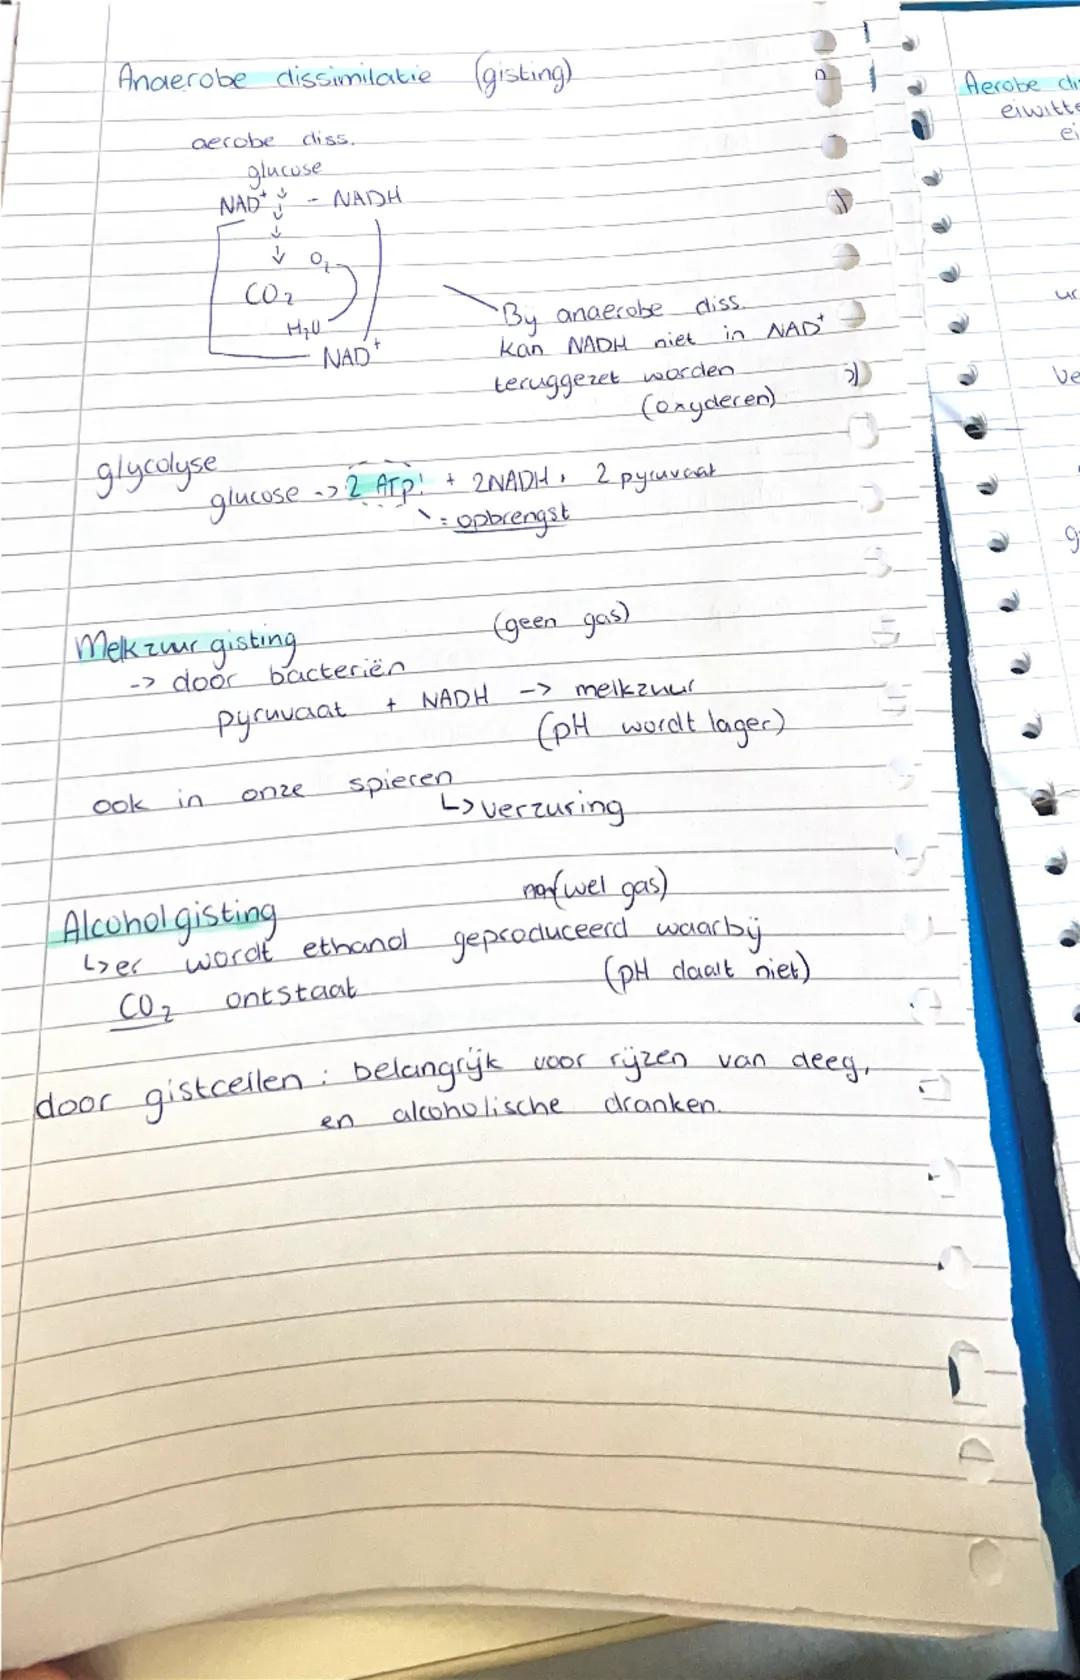 Anaerobe dissimilatie (gisting)
aerobe diss.
glucose
NAD⁺ - NADH
O₂
CO₂
H₂O
NAD⁺
By anaerobe diss.
kan NADH niet in NAD⁺
teruggezet worden
(oxyderen)
glycolyse
glucose -> 2 ATP! + 2NADH, 2 pyruvaat
= opbrengst
Melkzuur gisting (geen gas)
-> door bacteriën
pyruvaat + NADH -> melkzuur
(pH wordt lager)
ook in onze spieren
↳ verzuring
Alcohol gisting (wel gas)
↳ er wordt ethanol geproduceerd waarbij
CO₂ ontstaat (pH daalt niet)
door gistcellen: belangrijk voor rijzen van deeg,
en alcoholische dranken.
Aerobe di
eiwitte
ei
ur
Ve
g